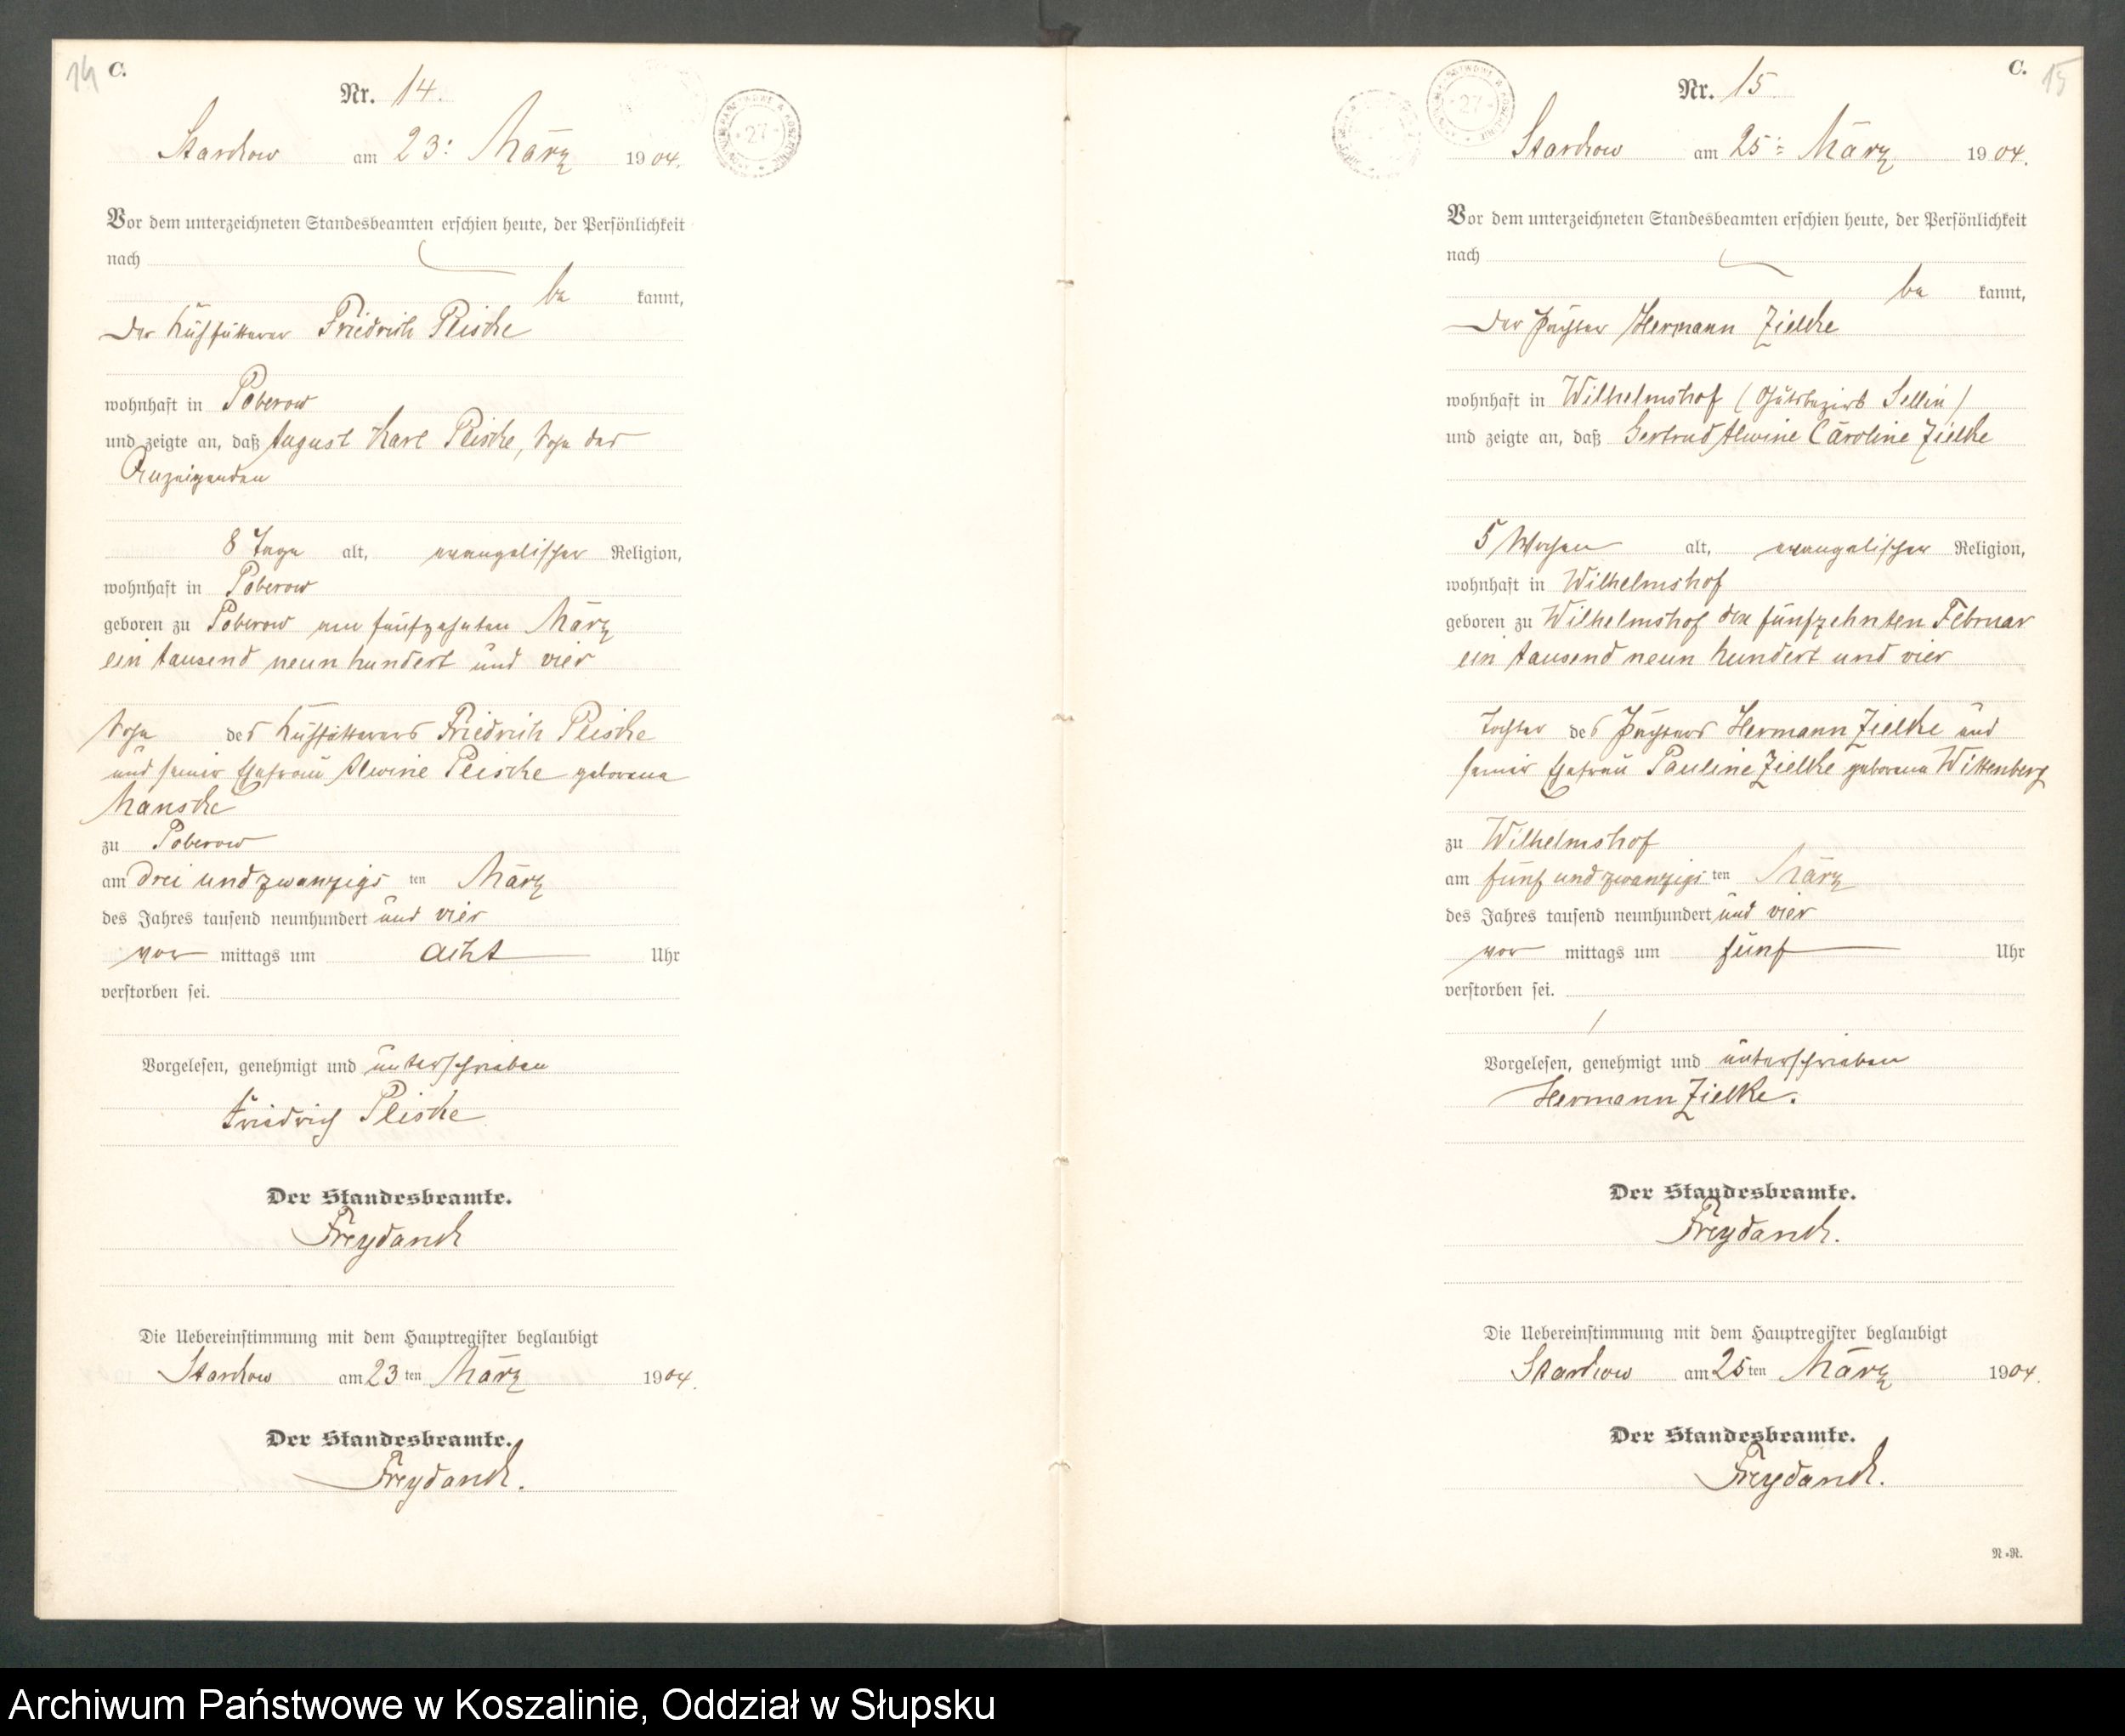 14
C.
Nr. 14.
Starkow am 23. März 1904.
Vor dem unterzeichneten Standesbeamten erschien heute, der Persönlichkeit
nach
be kannt,
der Kuhfütterer Friedrich Peische
wohnhaft in Poberow
und zeigte an, daß August Karl Peische, Sohn des
Anzeigenden
8 Tage alt, evangelischer Religion,
wohnhaft in Poberow
geboren zu Poberow am fünfzehnten März
ein tausend neun hundert und vier
Sohn des Kuhfütterers Friedrich Peische
und seiner Ehefrau Alwine Peische geborene
Manske
zu Poberow
am drei und zwanzigsten März
des Jahres tausend neunhundert und vier
vor mittags um acht Uhr
verstorben sei.
Vorgelesen, genehmigt und unterschrieben
Friedrich
Der Standesbeamte.
Freydanck
Die Uebereinstimmung mit dem Hauptregister beglaubigt
Starkow am 23ten März 1904.
Der Standesbeamte.
Freydanck.
C.
15
Nr. 15
27
Starkow am 25. März 1904.
Vor dem unterzeichneten Standesbeamten erschien heute, der Persönlichkeit
nach
be kannt,
der Pächter Hermann Zielke
wohnhaft in Wilhelmshof (Gutsbezirk Sellin)
und zeigte an, daß Gertrud Alwine Caroline Zielke
5 Wochen alt, evangelischer Religion,
wohnhaft in Wilhelmshof
geboren zu Wilhelmshof den fünfzehnten Februar
ein tausend neun hundert und vier
Tochter des Pächters Hermann Zielke und
seiner Ehefrau Pauline Zielke geborene Wittenberg
zu Wilhelmshof
am fünf und zwanzigsten März
des Jahres tausend neunhundert und vier
vor mittags um fünf Uhr
verstorben sei.
Vorgelesen, genehmigt und unterschrieben
Hermann Zielke.
Der Standesbeamte.
Freydanck.
Die Uebereinstimmung mit dem Hauptregister beglaubigt
Starkow am 25ten März 1904.
Der Standesbeamte.
Freydanck.
N.-R.
Archiwum Państwowe w Koszalinie, Oddział w Słupsku